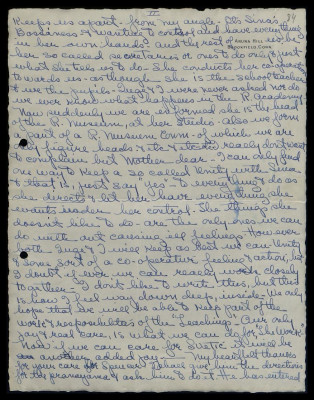 II
keeps us apart - from my angle - It's Sina's
Bossiness & wanting to control and have everything
in her own hands - and the rest of us to be
ARUNA HILL
BROOKFIELD, CONN.
her so called secretaries or ones to do only & just
what she tells us to do. She conducts her
towards us - as though she is the school teacher
& we the pupils - & I were never asked nor do
we ever know what happens in the R. Academy
Now suddenly we are informed she is the head
of the R. Museum, at her Studio - Also we form
a part of a R. Museum Comm - of which we are
only figure heads - I really don't want
to complain but Mother dear - I can only find
one way to keep a so called Unity with Sina
& that is, just say yes - to everything & do as
she directs & let her have everything she
wants under her control - The things she
doesn't like to do - are the only ones we can
do with out causing ill feelings - However
both & I will keep as best we can Unity
& some sort of a co-operative feeling & action, but
I doubt if ever we can really work closely
together - I don't like to write this, but this
is how I feel way down deep, inside. We only
hope that we will be able to keep part of the
work & responsibilities of the Teachings - Our only
joy & real care, is what we can do for the Work.
Now if we can care for it will be
another added joy - My heartfelt thanks
for your care for Spencer. I shall give him the directions
for the pranayama & ask him to do it. He has